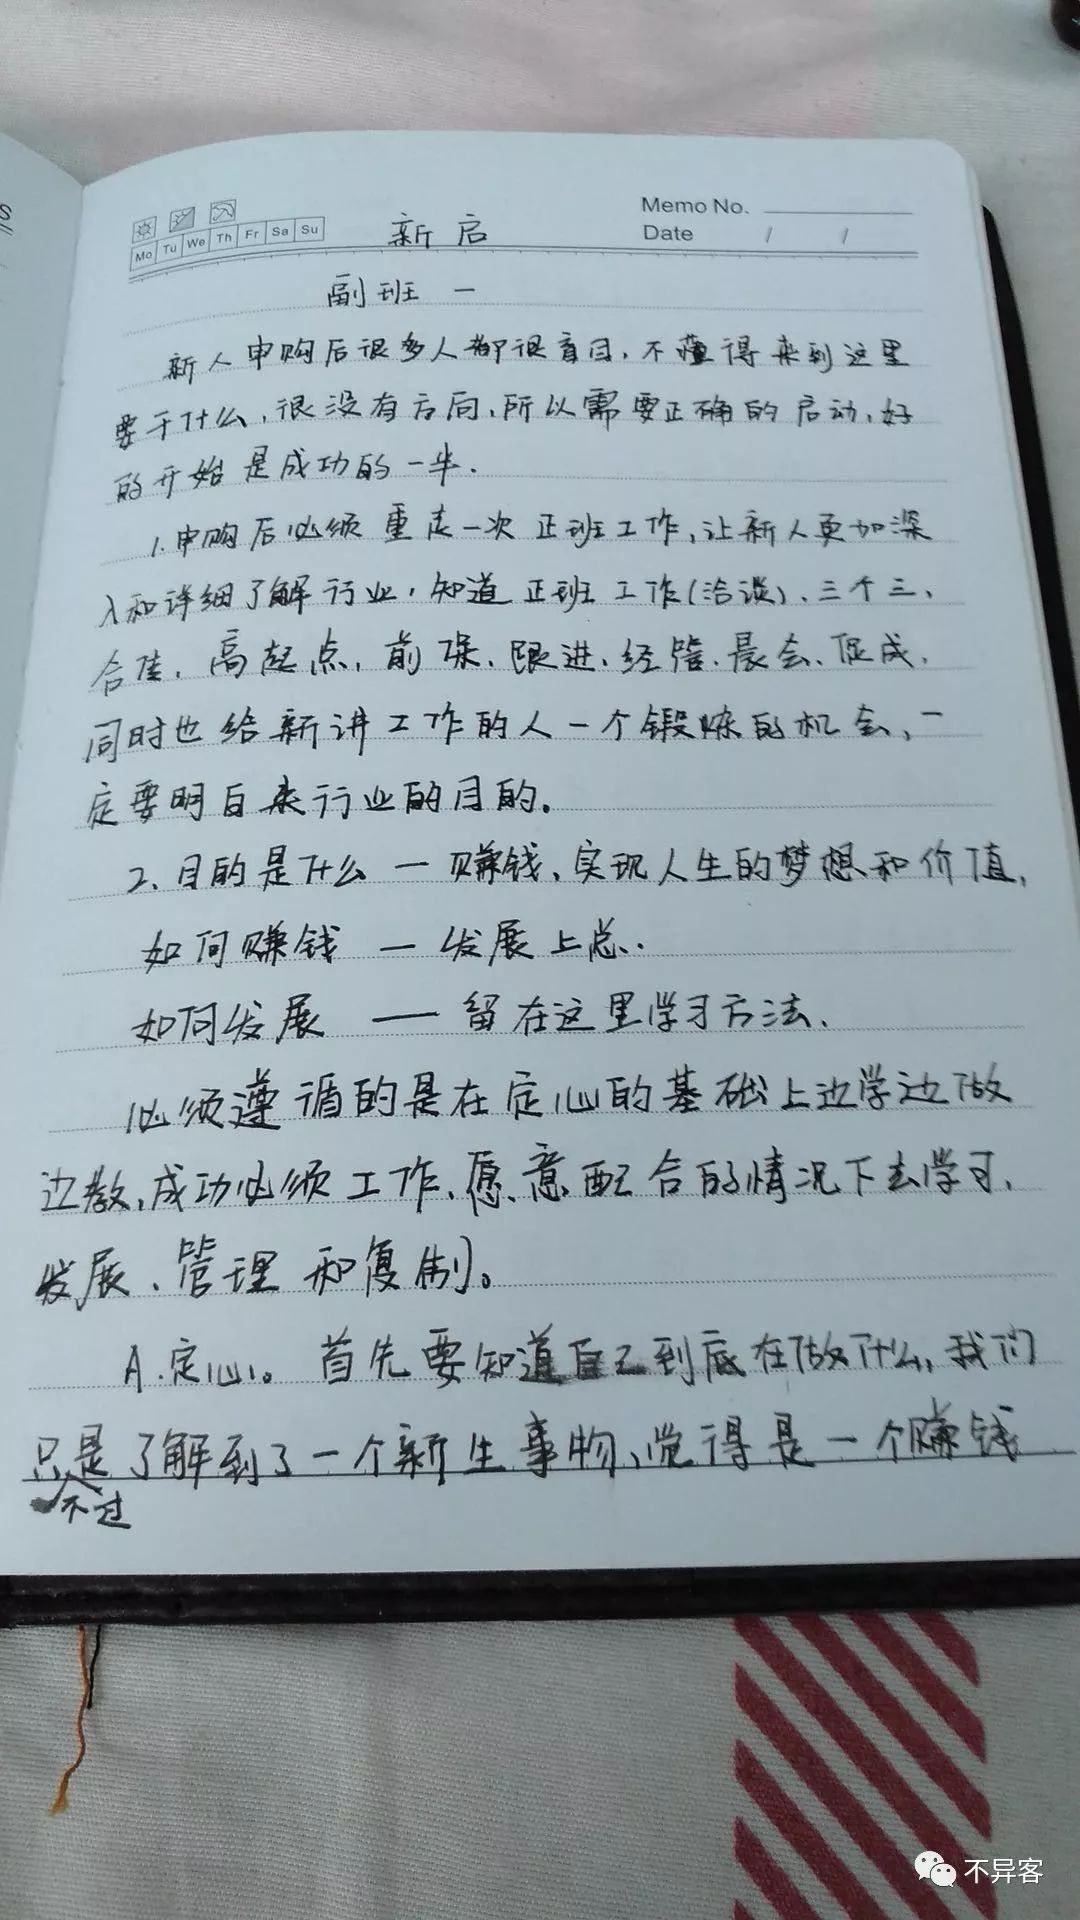 S
Mo Tu We Th Fr Sa Su
新启
Memo No.
Date / /
副班一
新人申购后很多人都很盲目，不懂得来到这里
要干什么，很没有方向，所以需要正确的启动，好
的开始是成功的一半.
1.申购后必须重走一次正班工作，让新人更加深
入和详细了解行业，知道正班工作(洽谈)、三个三、
合佳，高起点，前课，跟进，经管、晨会、促成，
同时也给新讲工作的人一个锻炼的机会，一
定要明白来行业的目的。
2、目的是什么一赚钱，实现人生的梦想和价值，
如何赚钱 — 发展上总.
如何发展 — 留在这里学习方法、
必须遵循的是在定心的基础上边学边做
边教，成功必须工作、愿意配合的情况下去学习，
发展、管理和复制。
A.定心。首先要知道自己到底在做什么，我们
只是了解到了一个新生事物，觉得是一个赚钱
不过
不异客